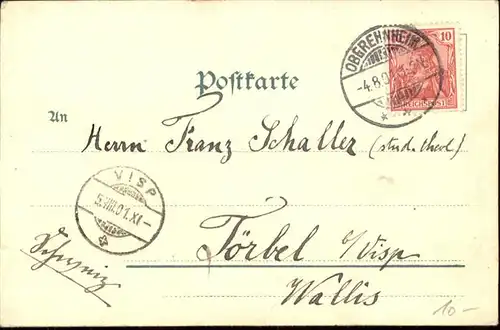 OBEREHNHEIM
-4.8.0
10
REICHSPOST
Postkarte
An
Herrn Franz Schaller (stud. theol.)
VISP
5.VIII.01.XI-
Törbel b/Visp
Schweiz
Wallis
10-